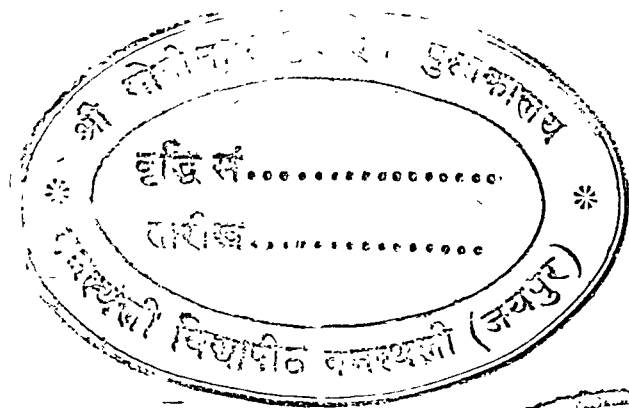 श्री पुस्तकालय
वृद्धि सं....................
तारीख....................
विद्यापीठ वनस्थली (जयपुर)